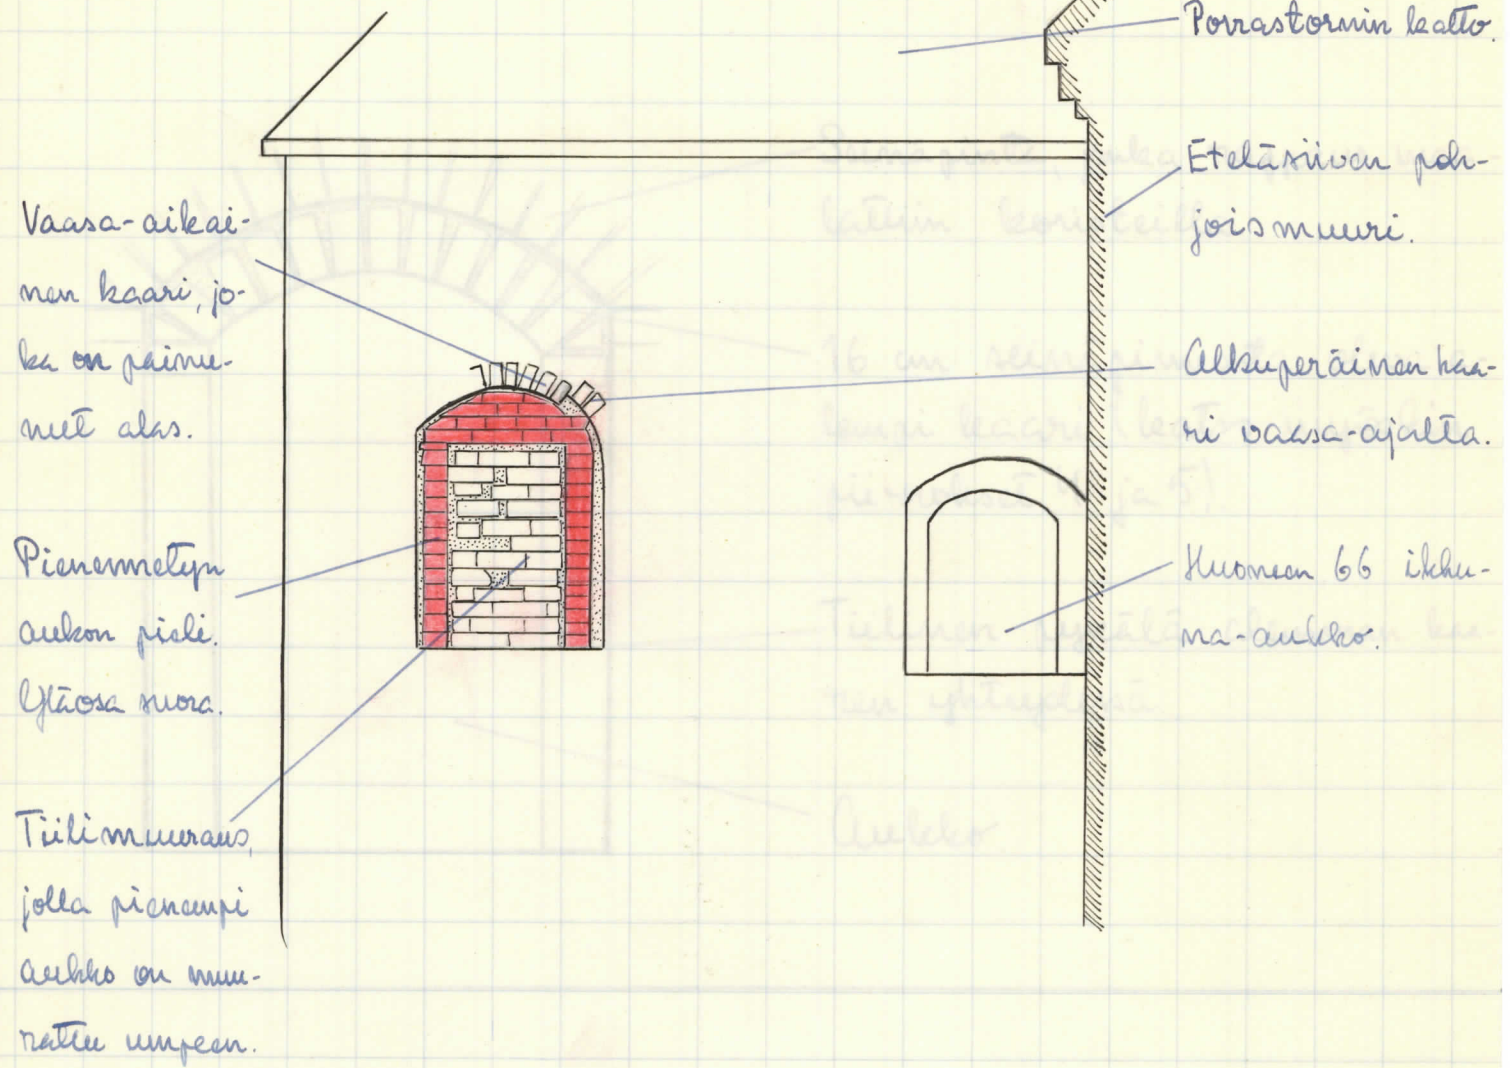 Vaasa-aikai-
nen kaari, jo-
ka on painu-
nut alas.
Pienennetyn
aukon pieli.
Yläosa suora.
Tiilimuuraus,
jolla pienempi
aukko on muu-
rattu umpeen.
Porrastornin katto.
Eteläsiiven poh-
joismuuri.
Alkuperäinen kaa-
ri vaasa-ajalta.
Huoneen 66 ikku-
na-aukko.
Aukko